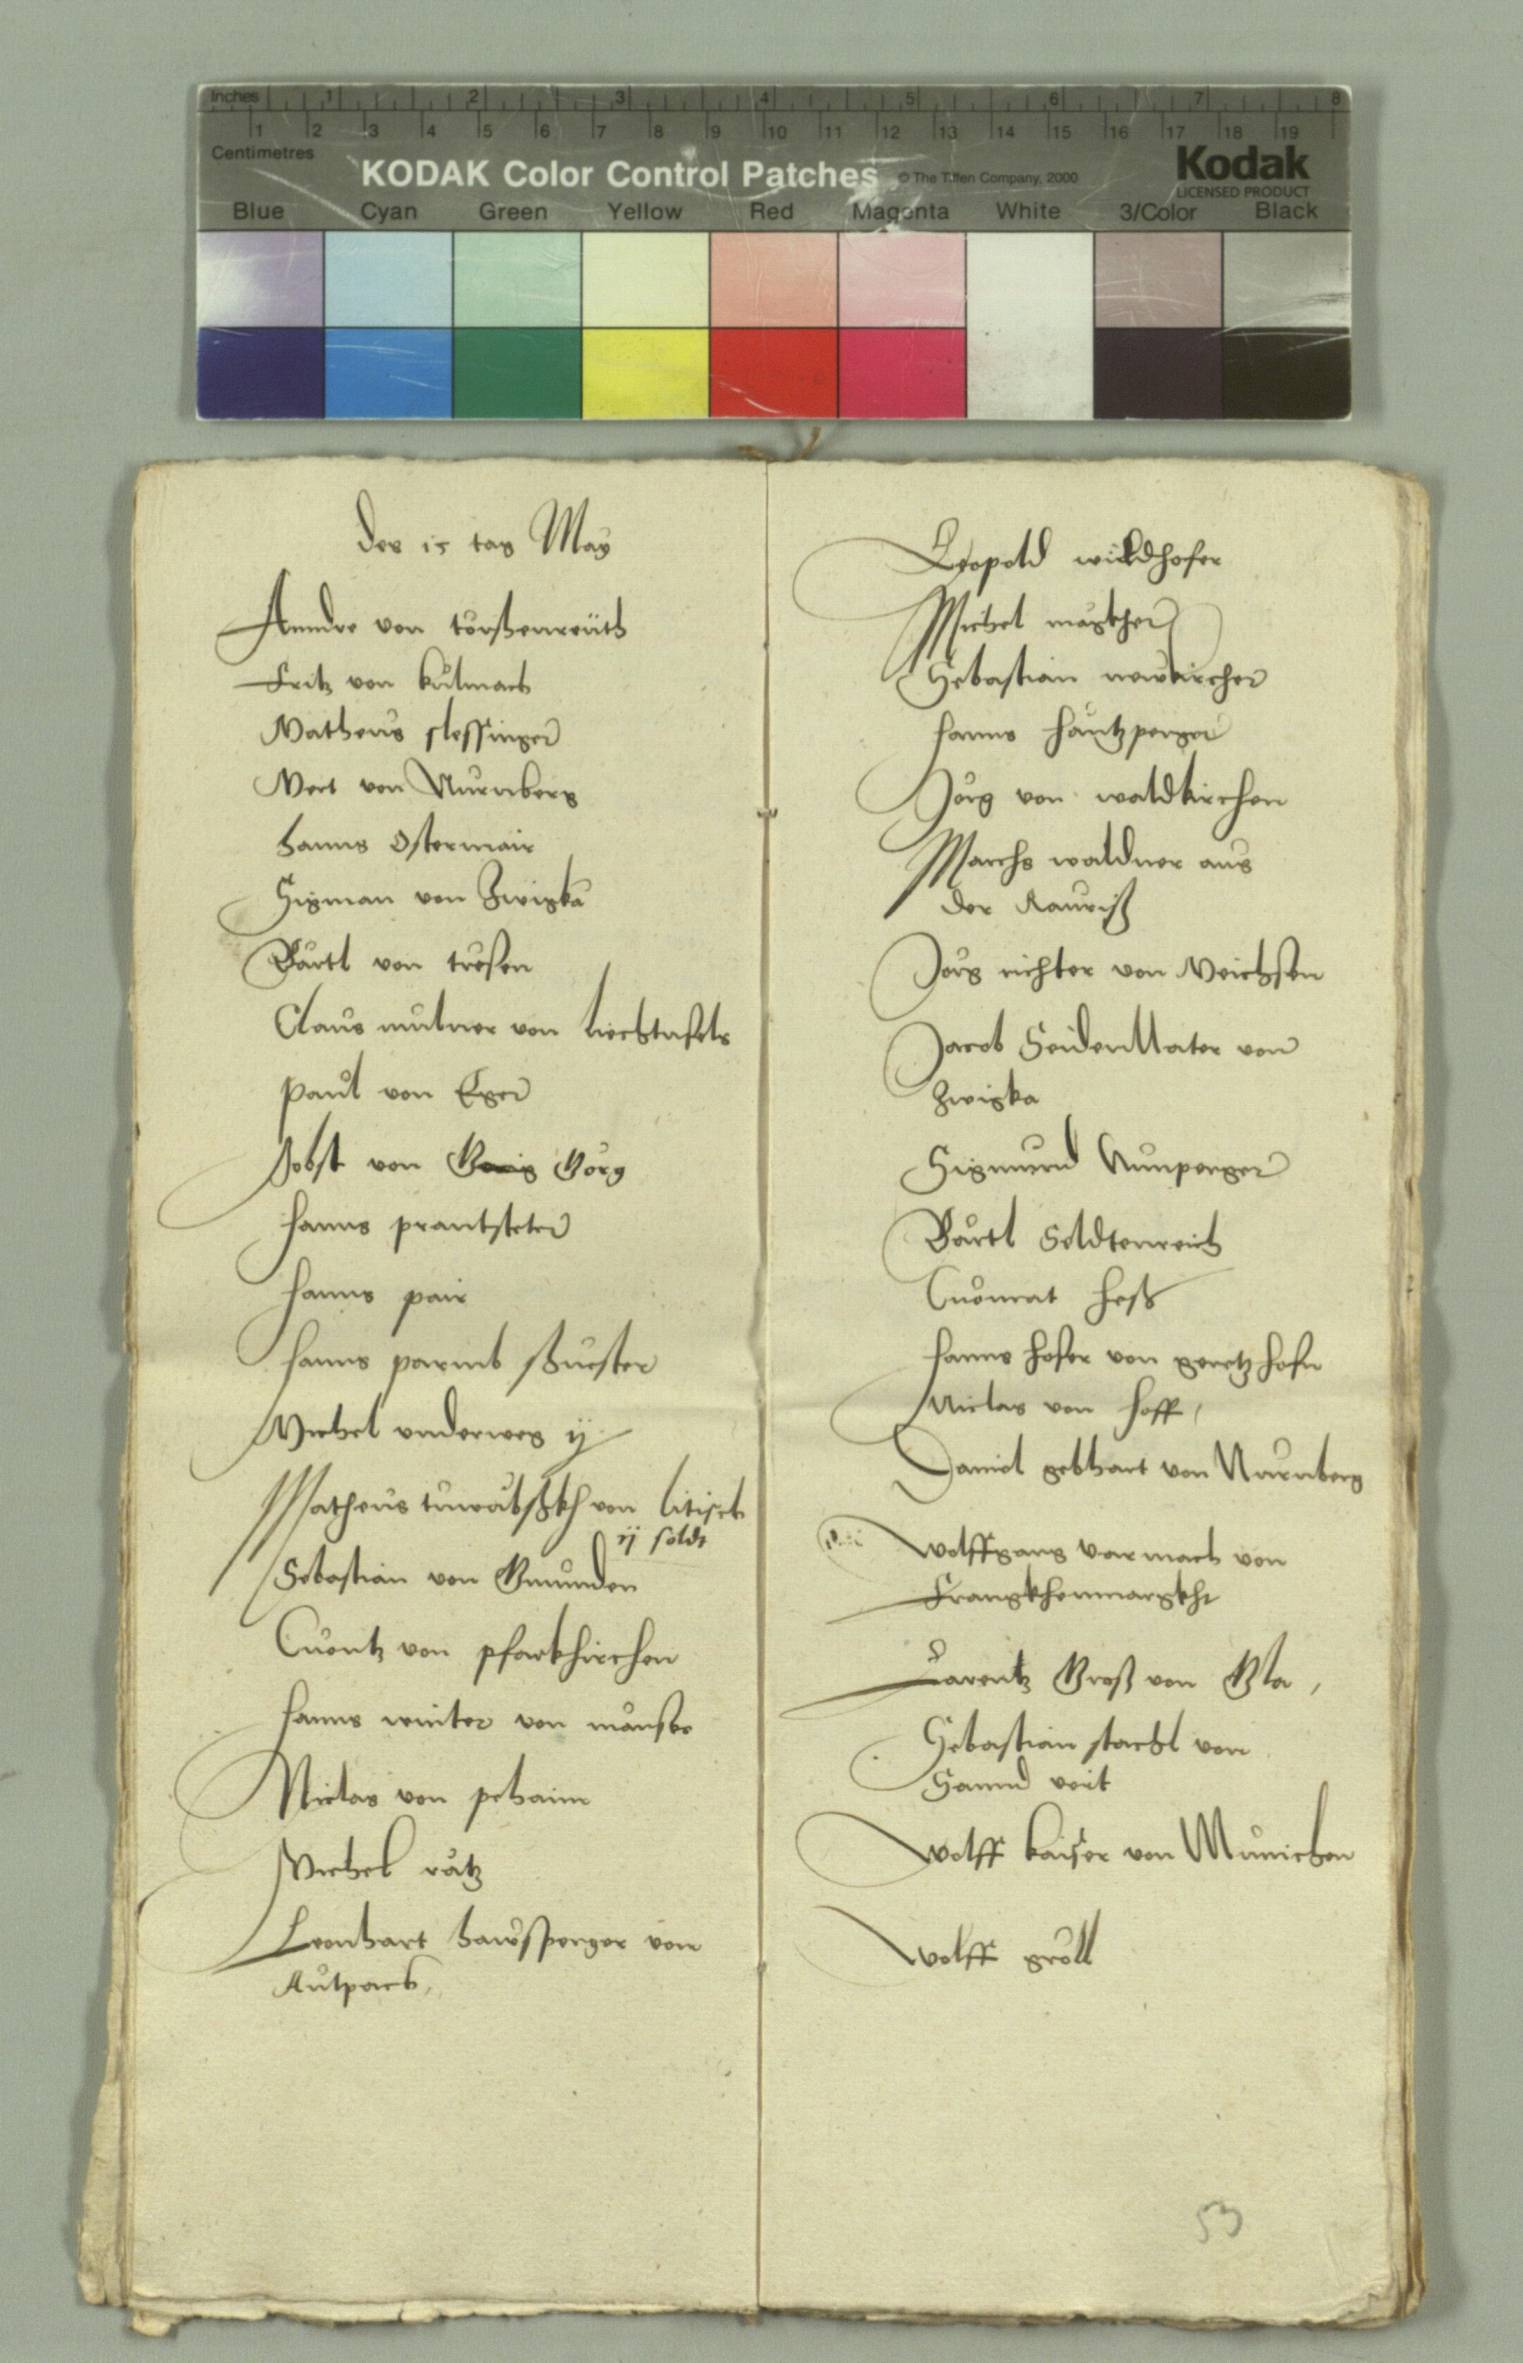 Inches 1 2 3 4 5 6 7 8
1 2 3 4 5 6 7 8 9 10 11 12 13 14 15 16 17 18 19
Centimetres
KODAK Color Control Patches © The Tiffen Company, 2000 Kodak
LICENSED PRODUCT
Blue Cyan Green Yellow Red Magenta White 3/Color Black
der 15 tag May
Anndre von türßhenreüth
Fritz von kulmach
Matheus slessinger
Veit von Nurnberg
hanns Ostermair
Sigman von Zwigka
Bärtl von tresen
Claus mulner von liechtnfels
Paul von Eger
Jobst von Görg
hanns prantsteter
hanns pair
hanns parmb schuester
Michel underweg ij
Matheus von litisch
ij soldt
Sebastian von Gmunden
Cuontz von pfarkhirchen
hanns winter von
Niclas von pehaim
Michel rätz
Leonhart hawsperger von
Aulpach
Leopold wildhofer
Michel
Sebastian newkircher
hanns hautzperger
Jörg von waldkirchen
Marchs waldner aus
der Rauriß
Jörg richter von Meichsen
Jacob Seidenllater von
Zwigka
Sigmund Nunperger
Bärtl Seldtenreich
Cuonrat heß
hanns hofer von geretzhofn
Niclas von hoff
Daniel gebhart von Nurnberg
Wolffgang von
Frangkhenmargkht
Larentz Groß von Gla
Sebastian stachl von
Sannd veit
Wolff kaiser von Munichen
Wolff gröll
53